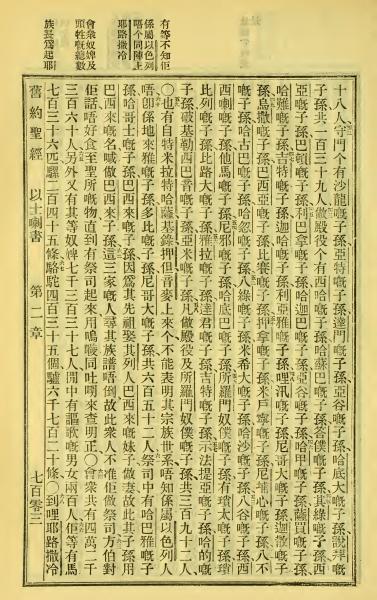 有等不知佢
係屬以色列
嗎个同陣上
耶路撒冷
會衆奴婢及
頭牲嘅總數
族長爲起耶
十八人守門个有沙龍嘅子孫亞特嘅子孫達們嘅子孫亞谷嘅子孫哈底大嘅子孫說拜嘅
子孫共一百三十九人做殿役个有西哈嘅子孫哈蘇巴嘅子孫答僕嘅子孫其綠嘅子孫西
亞嘅子孫巴頓嘅子孫利巴拿嘅子孫哈迦巴嘅子孫亞谷嘅子孫哈甲嘅子孫薩買嘅子孫
哈難嘅子孫吉特嘅子孫迦哈嘅子孫利亞雅嘅子孫哩汛嘅子孫尼哥大嘅子孫迦散嘅子
孫烏撒嘅子孫巴西亞嘅子孫比賽嘅子孫押拿嘅子孫米甯嘅子孫尼普心嘅子孫八不
嘅子孫哈古巴嘅子孫哈忽嘅子孫八綠嘅子孫米希大嘅子孫哈沙嘅子孫八谷嘅子孫西
西喇嘅子孫他馬嘅子孫尼邪嘅子孫哈底巴嘅子孫所羅門奴僕嘅子孫有瑣太嘅子孫瑣
比列嘅子孫比路大嘅子孫雅拉嘅子孫達君嘅子孫吉特嘅子孫示法提亞嘅子孫哈的嘅
子孫破基勒西巴音嘅子孫亞米嘅子孫凡做殿役及所羅門奴僕嘅子孫共三百九十二人
○也有自特米拉特哈薩基綠押但音麥上來个不能表明其宗族世系唔知係屬以色列人
唔卽係地來雅嘅子孫多比嘅子孫尼哥大嘅子孫共六百五十二人祭司中有哈巴雅嘅子
孫哈哥士嘅子孫巴西來嘅子孫因爲其先祖娶其列人巴西來嘅妹子做妻故此其子孫用
巴西來嘅名喊做巴西來子孫這三家嘅人尋其族譜唔倒故此衆人不准佢做祭司方伯對
佢話唔好食至聖所嘅物直到有祭司起來用嗚㖫同吐嘪來查明正○會衆共有四萬二千
三百六十人另外又有其等奴婢七千三百三十七人開中有謳歌嘅男女兩百人佢等有馬
七百三十六匹騾二百四十五條駱駝四百三十五個驢六千七百二十條○到哩耶路撒冷
舊約聖經 以士喇書 第二章 七百零三